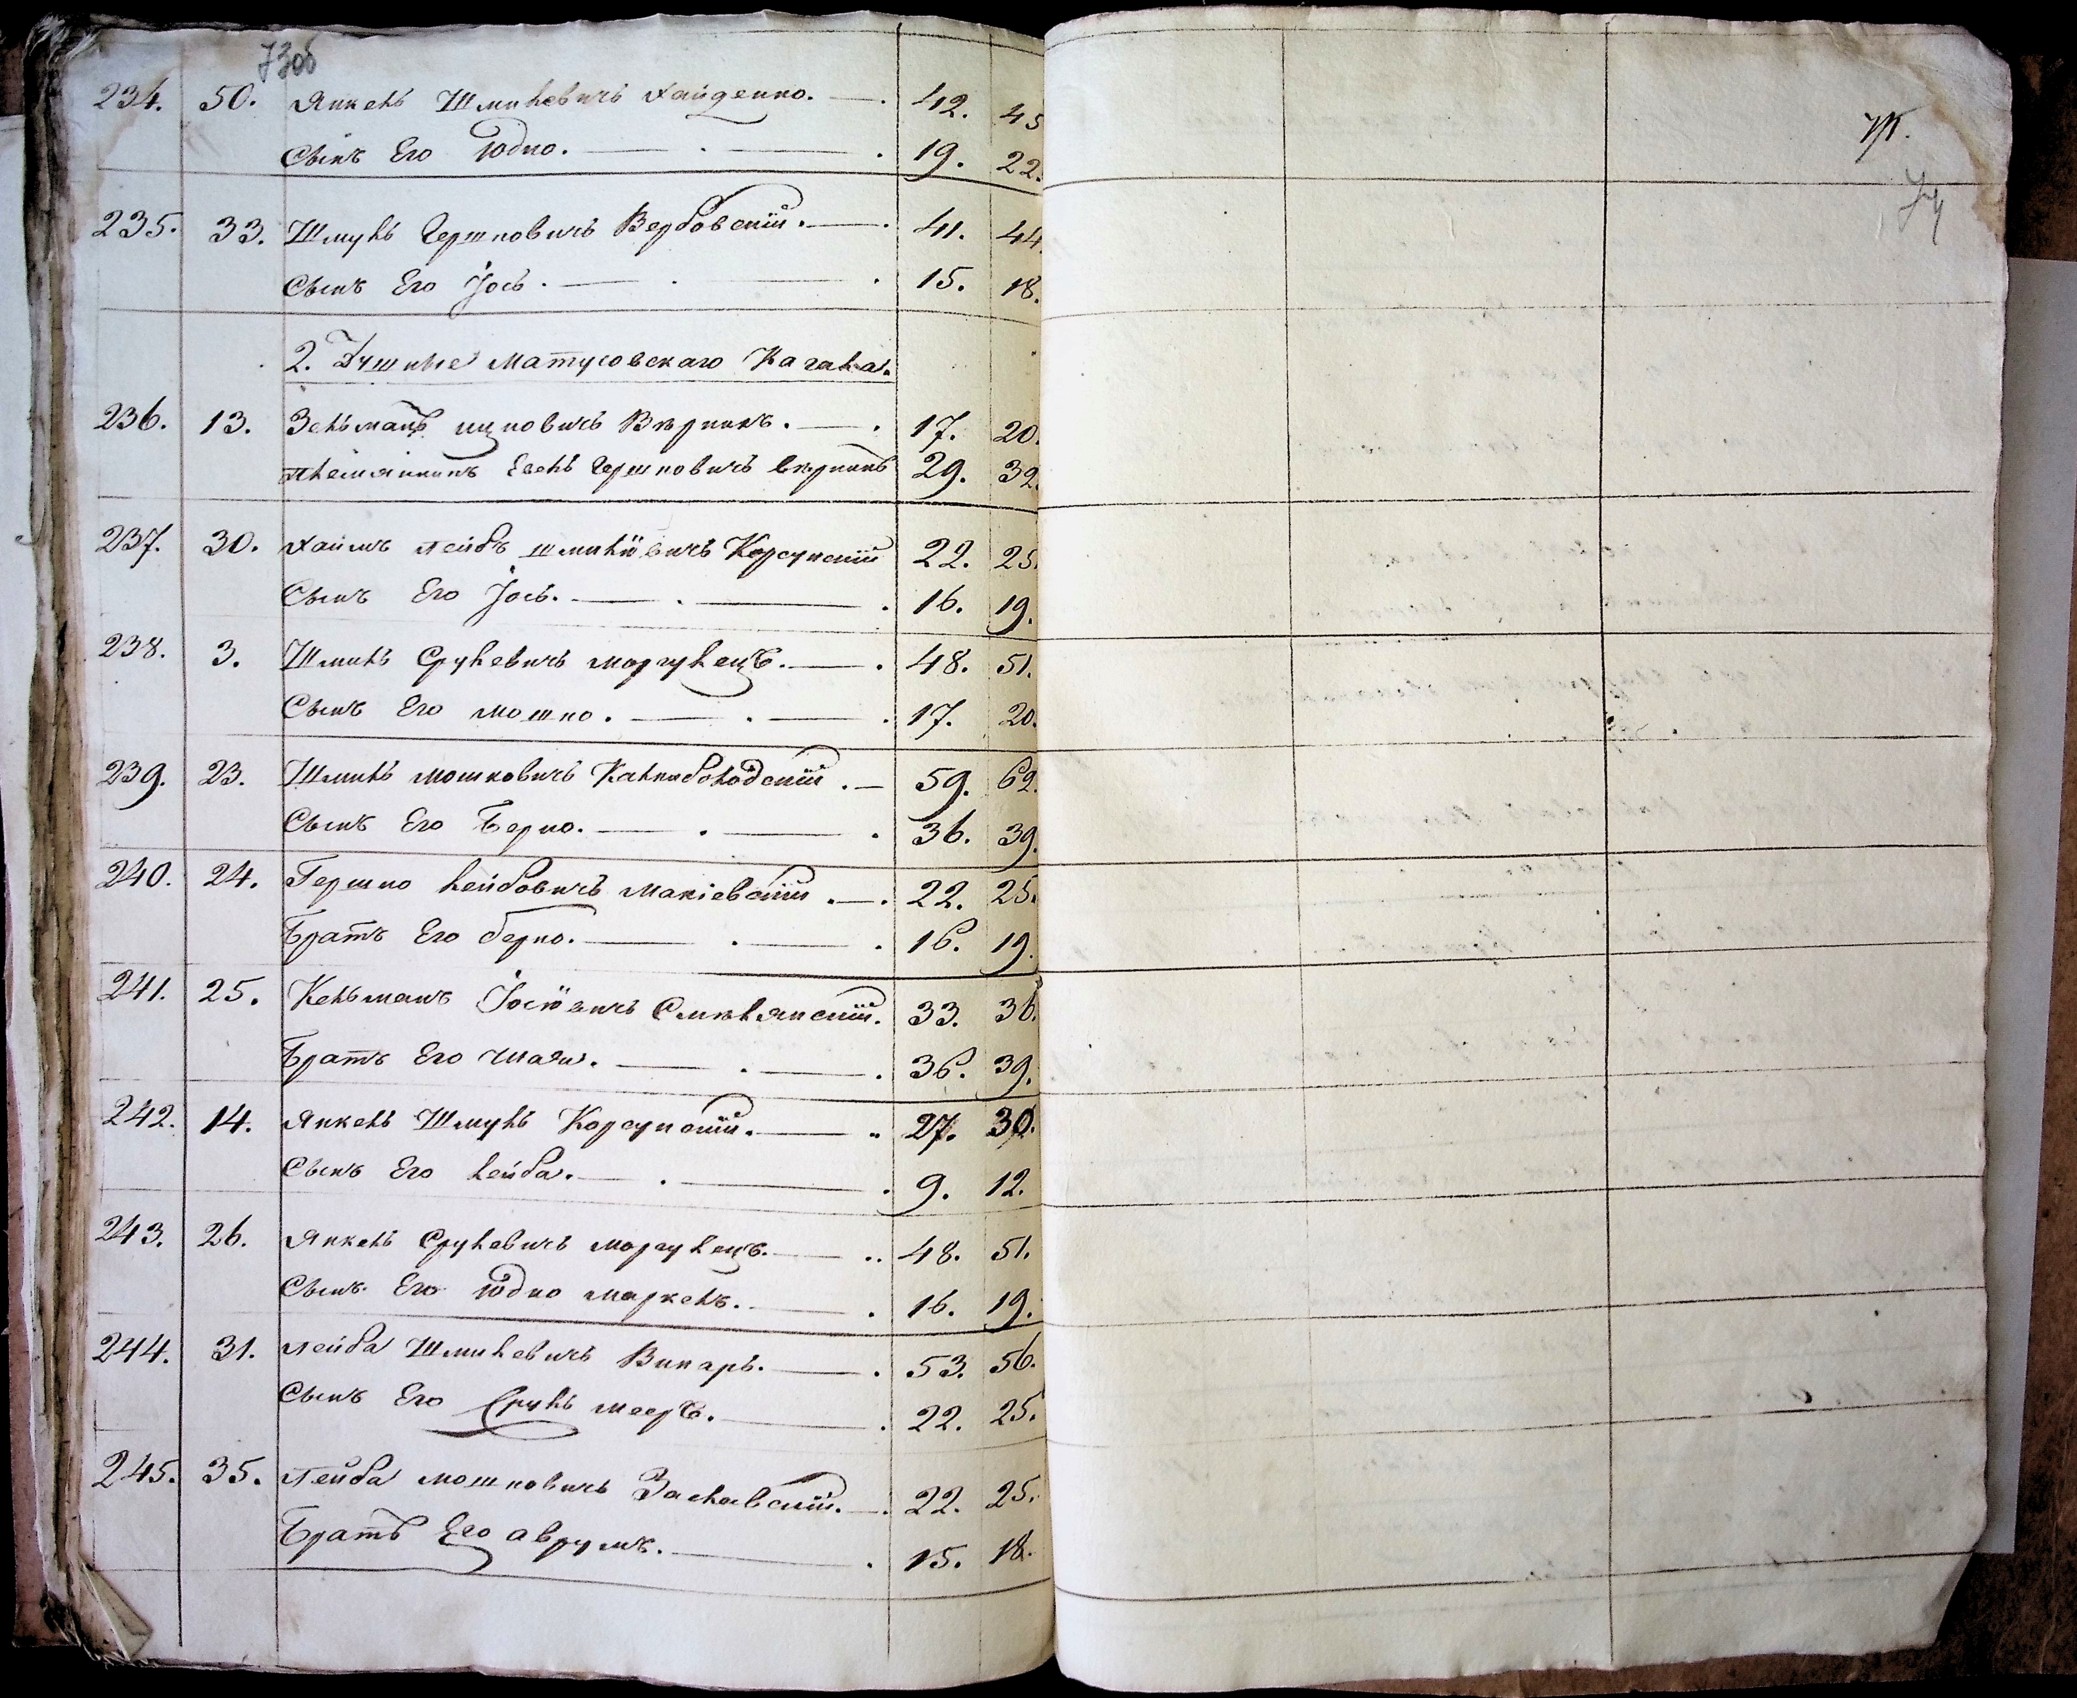 73об
234. 50. Янкель Шмилевичъ Хайденко. 42. 45
Сынъ Его Юдко. 19. 22.
235. 33. Шмуль Гершковичъ Вербовскій. 41. 44.
Сынъ Его Іось. 15. 18.
2. Матусовскаго Кагала.
236. 13. Зельманъ Ицковичъ Вѣрникъ. 17. 20.
племянникъ Евель Гершковичъ Вѣрникъ 29. 32.
237. 30. Хаимъ Лейбъ Шмилiовичъ Корсунскій 22. 25.
Сынъ Его Іось. 16. 19.
238. 3. Шмиль Срулевичъ Моргулецъ. 48. 51.
Сынъ Его Мошко. 17. 20.
239. 23. Шмиль Мошковичъ Калниболодскій. 59. 62.
Сынъ Его Берко. 36. 39.
240. 24. Гершко Лейбовичъ Макіевскій. 22. 25.
Братъ Его Берко. 16. 19.
241. 25. Кельманъ Іосiовичъ Смилянскій. 33. 36.
Братъ Его Шая. 36. 39.
242. 14. Янкель Шмуль Корсунскій. 27. 30.
Сынъ Его Лейба. 9. 12.
243. 26. Янкель Срулевичъ Моргулецъ. 48. 51.
Сынъ Его Юдко Маркель. 16. 19.
244. 31. Лейба Шмилевичъ Винарь. 53. 56.
Сынъ Его Сруль Мееръ. 22. 25.
245. 35. Лейба Мошковичъ Заславскій. 22. 25.
Братъ Его Аврумъ. 15. 18.
74